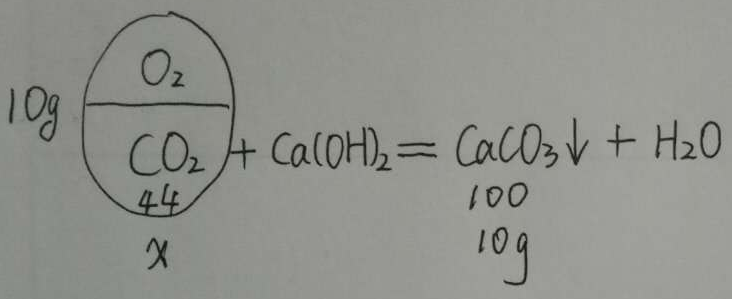 O₂
10g
CO₂ + Ca(OH)₂ = CaCO₃↓ + H₂O
44 100
x 10g